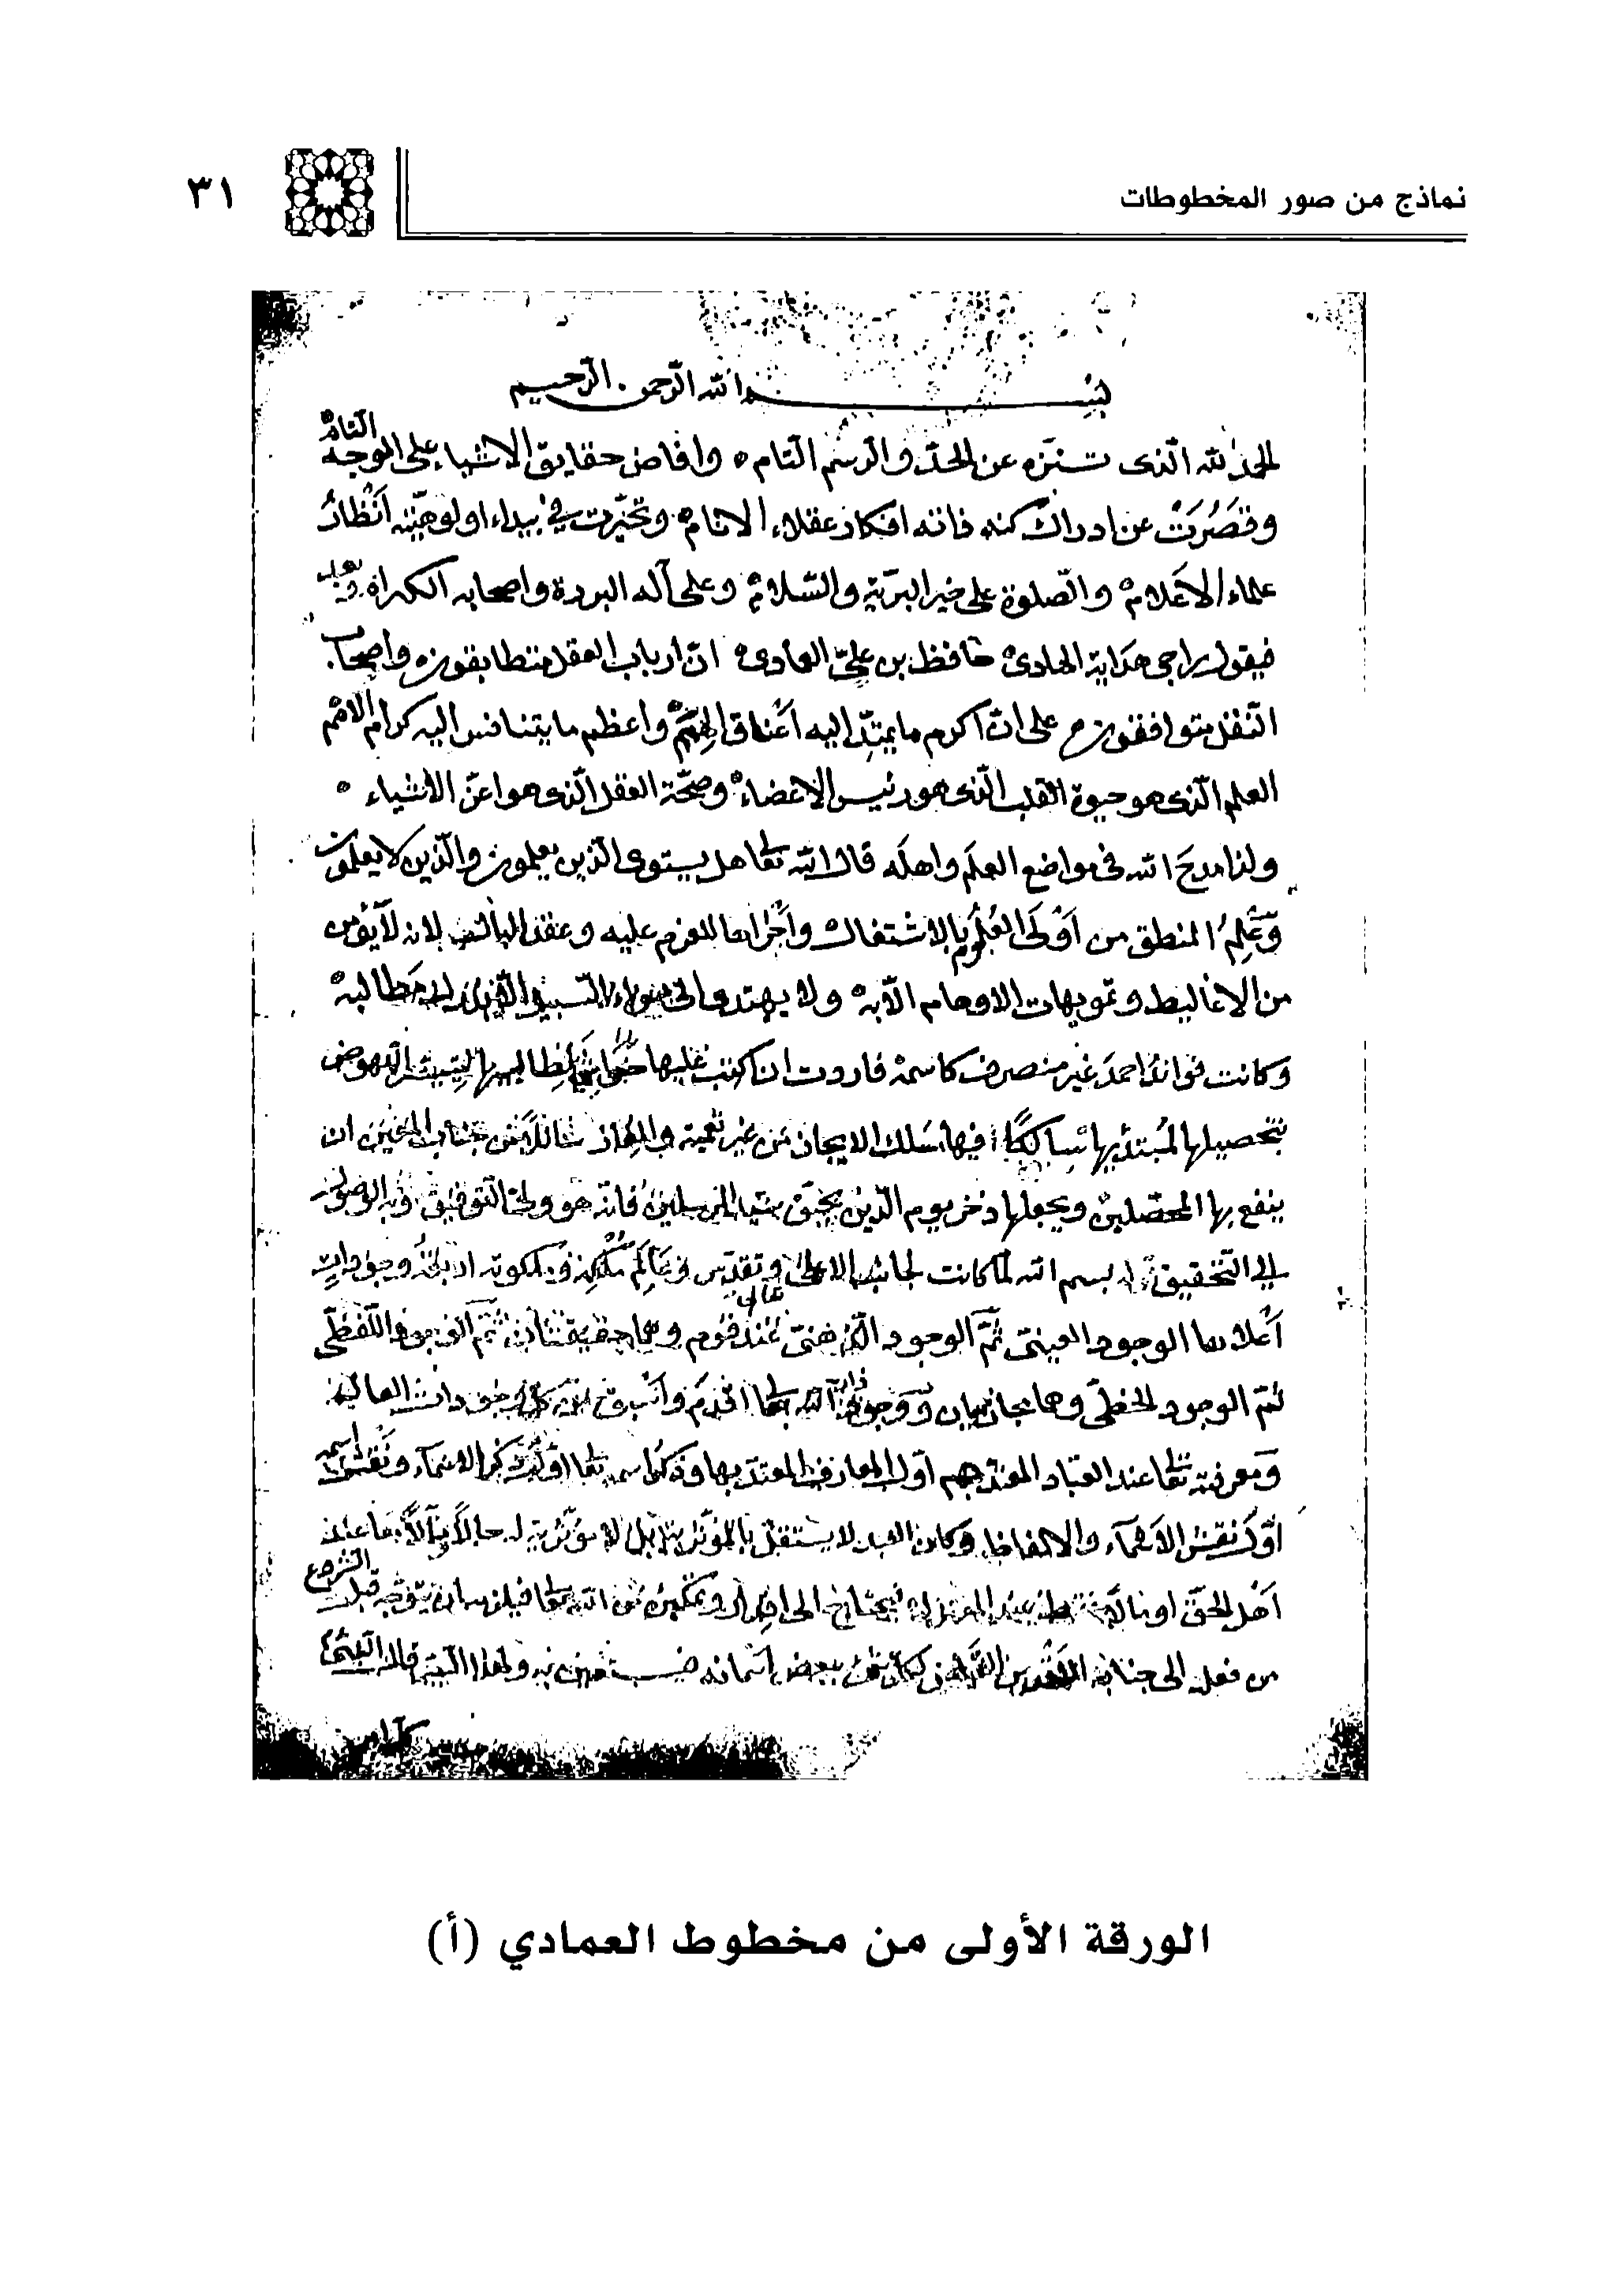 نماذج من صور المخطوطات
٣١
بسم الله الرحمن الرحيم
الحمد لله الذى تنزه عن الحد والرسم التام وافاض حقايق الاشياء على الوجه التام
وقصرت عن ادراك كنه ذاته افكار عقلاء الانام وتحيرت في بيداء اولوهيته انظار
علماء الاعلام والصلوة على خير البرية والسلام وعلى آله البررة واصحابه الكرام وبعد
فيقول راجى هداية الهادى حافظ بن على العمادى ان ارباب العقل متطابقون واصحاب
النقل متوافقون على ان اكرم ما يمتد اليه اعناق الهمم واعظم ما يتنافس اليه كرام الامم
العلم الذى هو حيوة القلب الذى هو رئيس الاعضاء وصحة العقل الذى هو اعز الاشياء
ولذا مدح الله فى مواضع العلم واهله قال الله تعالى هل يستوى الذين يعلمون والذين لا يعلمون
وعلم المنطق من اولى العلوم بالاشتغال واجراها للعزم عليه وعقد البال لان لا يؤمن
من الاغاليط وتمويهات الاوهام الا به ولا يهتدى الى سواء السبيل الى مطالبه
وكانت فوائد احمد غير منصرف كاسمه فاردت ان اكتب عليها حواشى لطالبيها ليتيسر النهوض
بتحصيلها لمبتديها سالكا فيها مسلك الايجاز من غير تعمية والغاز سائلا من جناب المعين ان
ينفع بها المحصلين ويجعلها ذخر يوم الدين بحق سيد المرسلين فانه هو ولى التوفيق وبه الوصول
الى التحقيق بسم الله لما كانت لجانب الاعلى وتقدس فى عالم ملكه وملكوته وجودات
اعلاها الوجود العينى ثم الوجود الذهنى عند قوم وهما حقيقتان ثم الوجود اللفظى
ثم الوجود الخطى وهما مجازيان ووجود ذات الله تعالى اقدم واسبق من كل وجودات العالية
ومعرفته تعالى عند العباد اول المعارف المعتد بها وذكر اسمه تعالى اول ذكر الاسماء ونقش اسمه
اول نقش الاسماء والالفاظ وكان العبد لا يستقل بل لا مؤثرية له حالا عند
اهل الحق يحتاج الى اقدار وتمكين من الله تعالى قبل الشروع
من فعله الى جناب ببعض اسمائه فيستعين به ولهذا قال النبى
الورقة الأولى من مخطوط العمادي (أ)